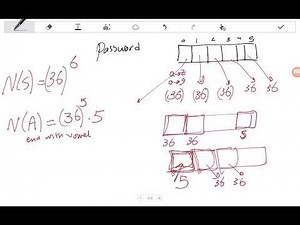 Password
0 1 2 3 4 5
N(S) = (36)^6
a→z
0→9
(36) (36) (36) (36) 36 36
N(A) = (36)^5 · 5
end with vowel
5
36 36
5 36 36